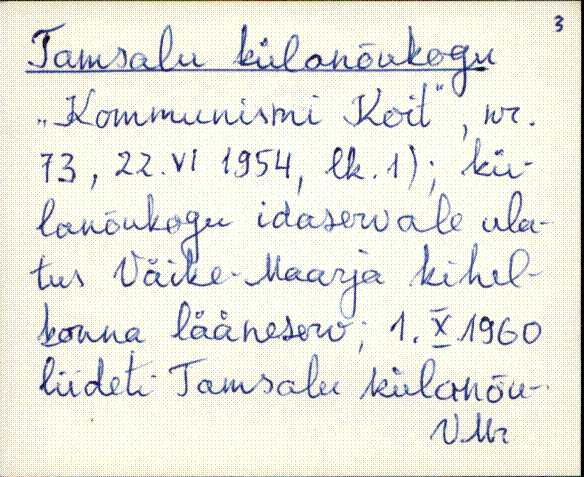 3
Tamsalu külanõukogu
„Kommunismi Koit", nr.
73, 22. VI 1954, lk. 1); kü-
lanõukogu idaservale ula-
tus Väike-Maarja kihel-
konna lääneserv; 1. X 1960
liideti Tamsalu külanõu-
V.Mr